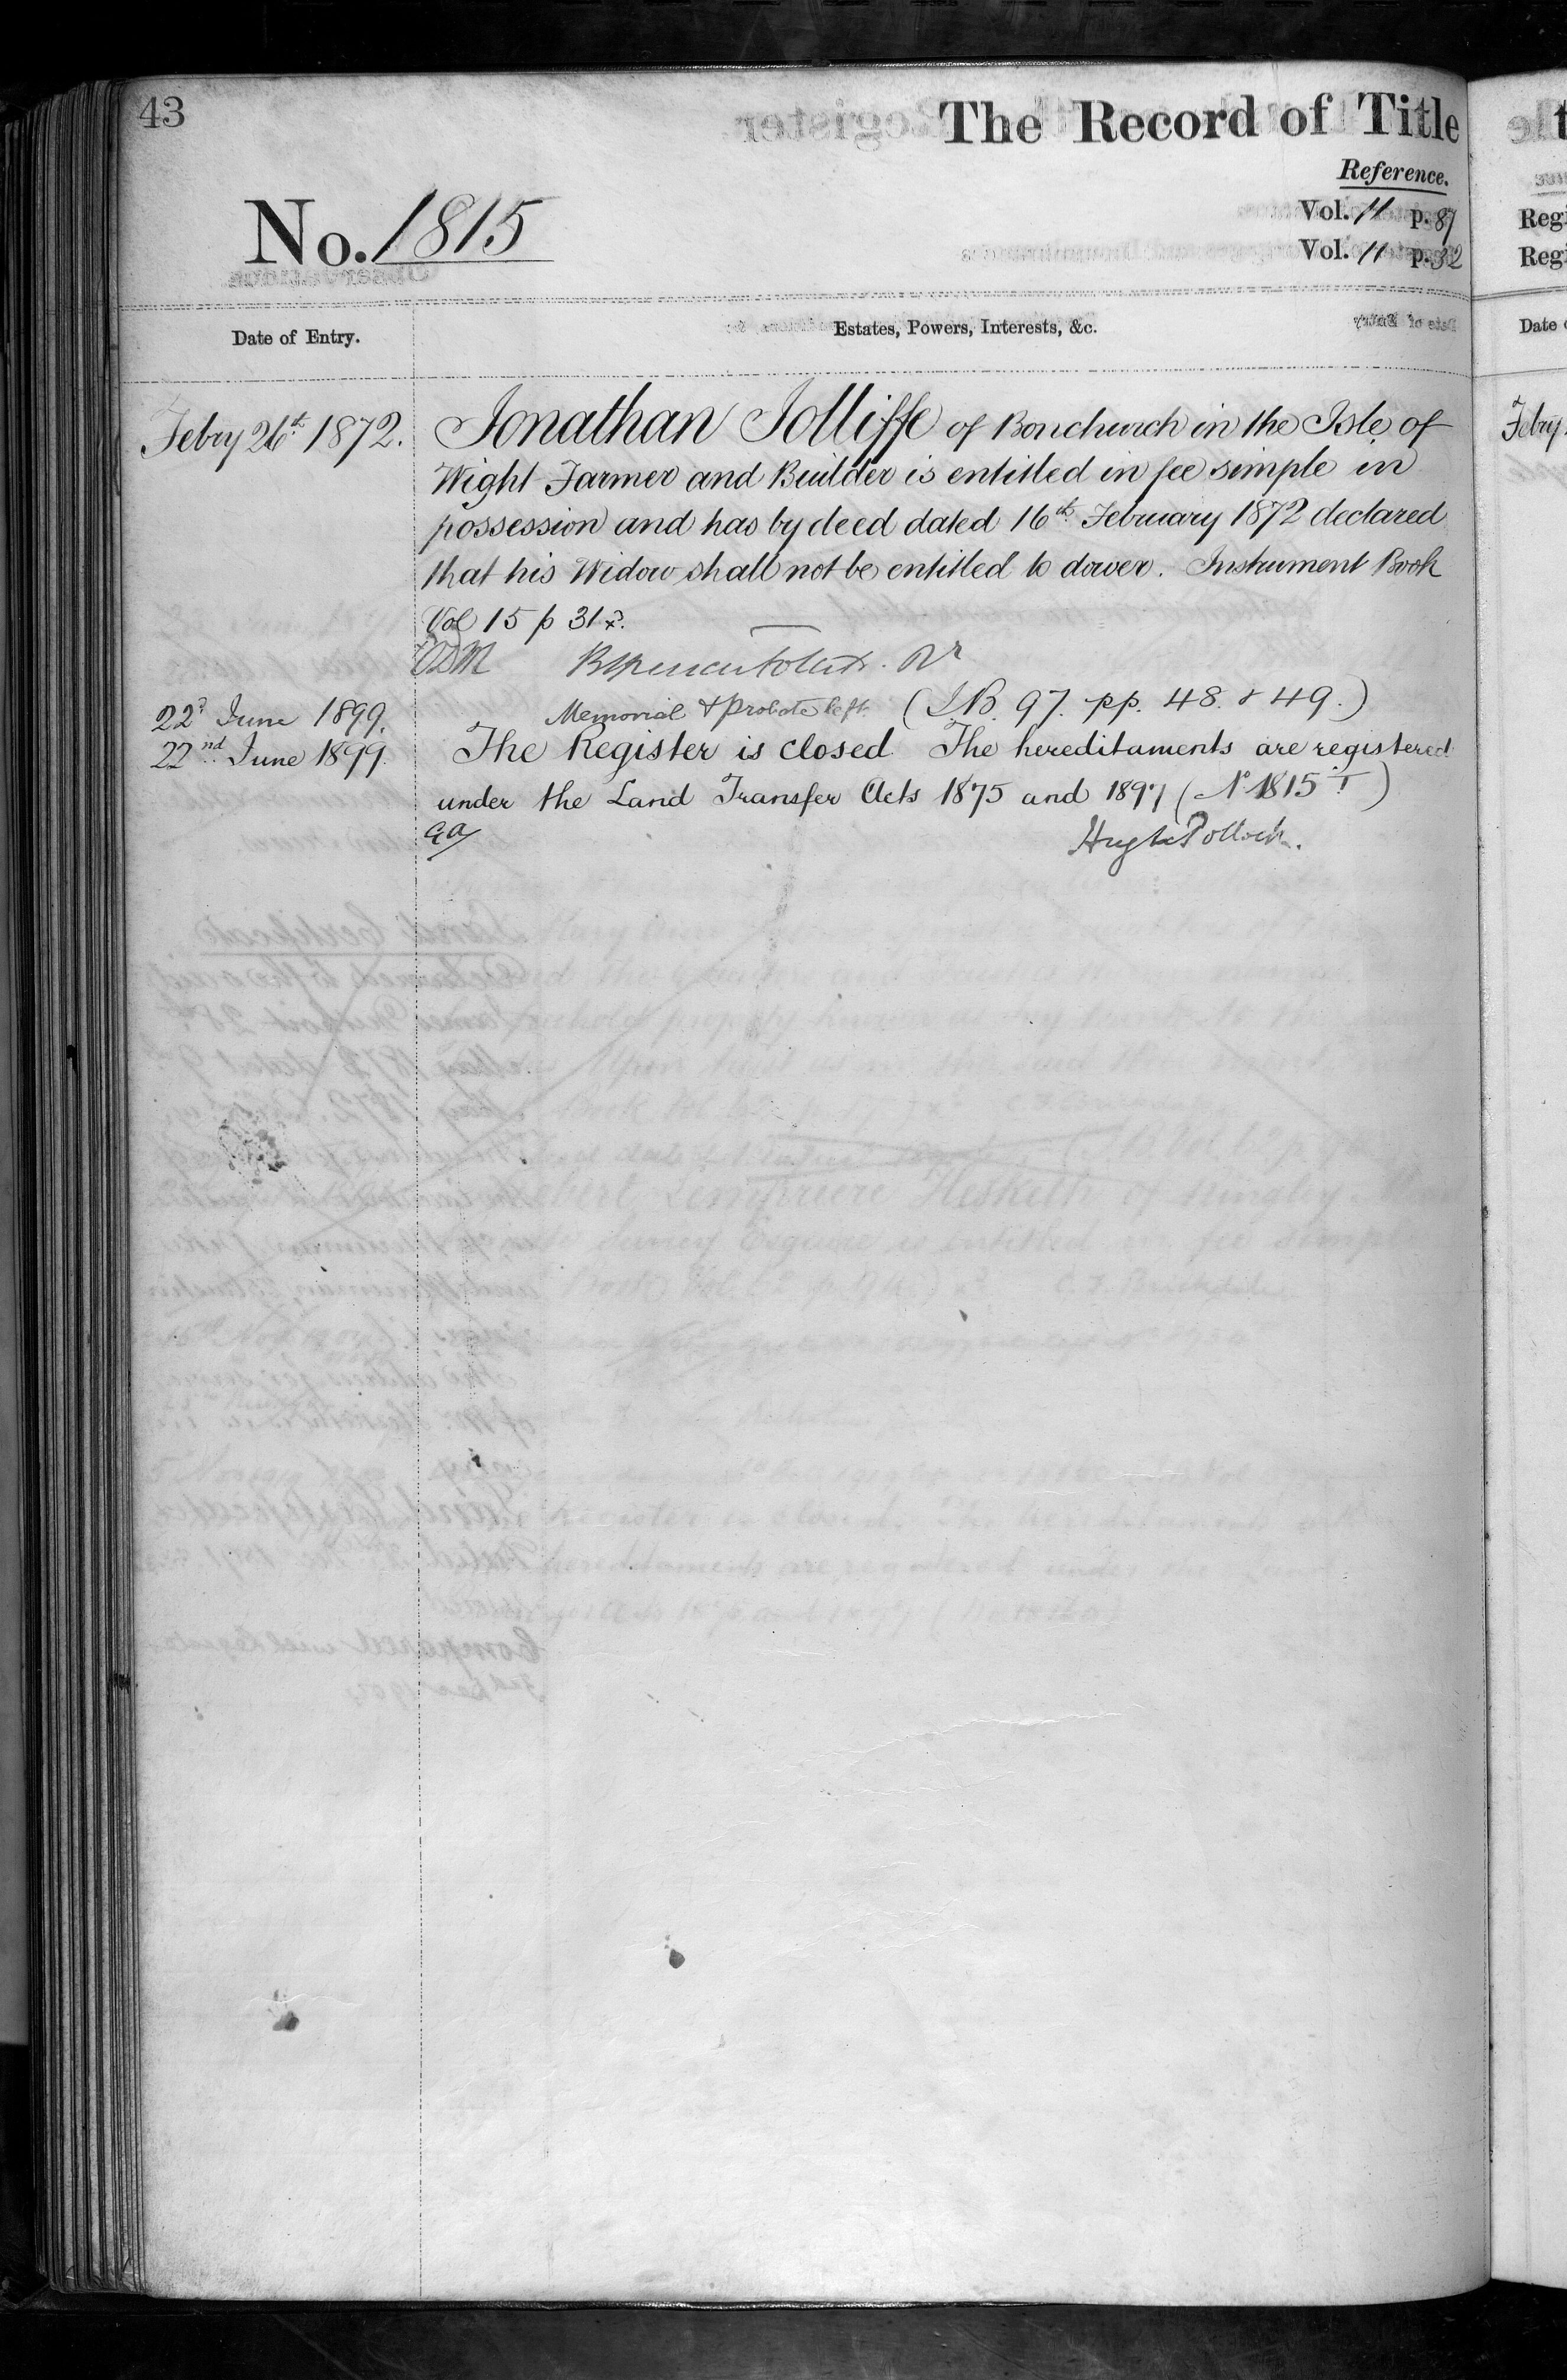 43
The Record of Title
Reference.
No. 1815
Vol. 11 p. 87
Vol. 11 p. 32
Date of Entry.
Estates, Powers, Interests, &c.
Febry 26th 1872.
Jonathan Jolliffe of Bonchurch in the Isle of
Wight Farmer and Builder is entitled in fee simple in
possession and has by deed dated 16th February 1872 declared
that his Widow shall not be entitled to dower. Instrument Book
Vol 15 p 31
22d June 1899.
Memorial & Probate left. (I.B. 97. pp. 48. & 49.)
22nd June 1899.
The Register is closed The hereditaments are registered
under the Land Transfer Acts 1875 and 1897 (No 1815 T)
Hugh Pollock.
Regi
Regi
Date
Febry